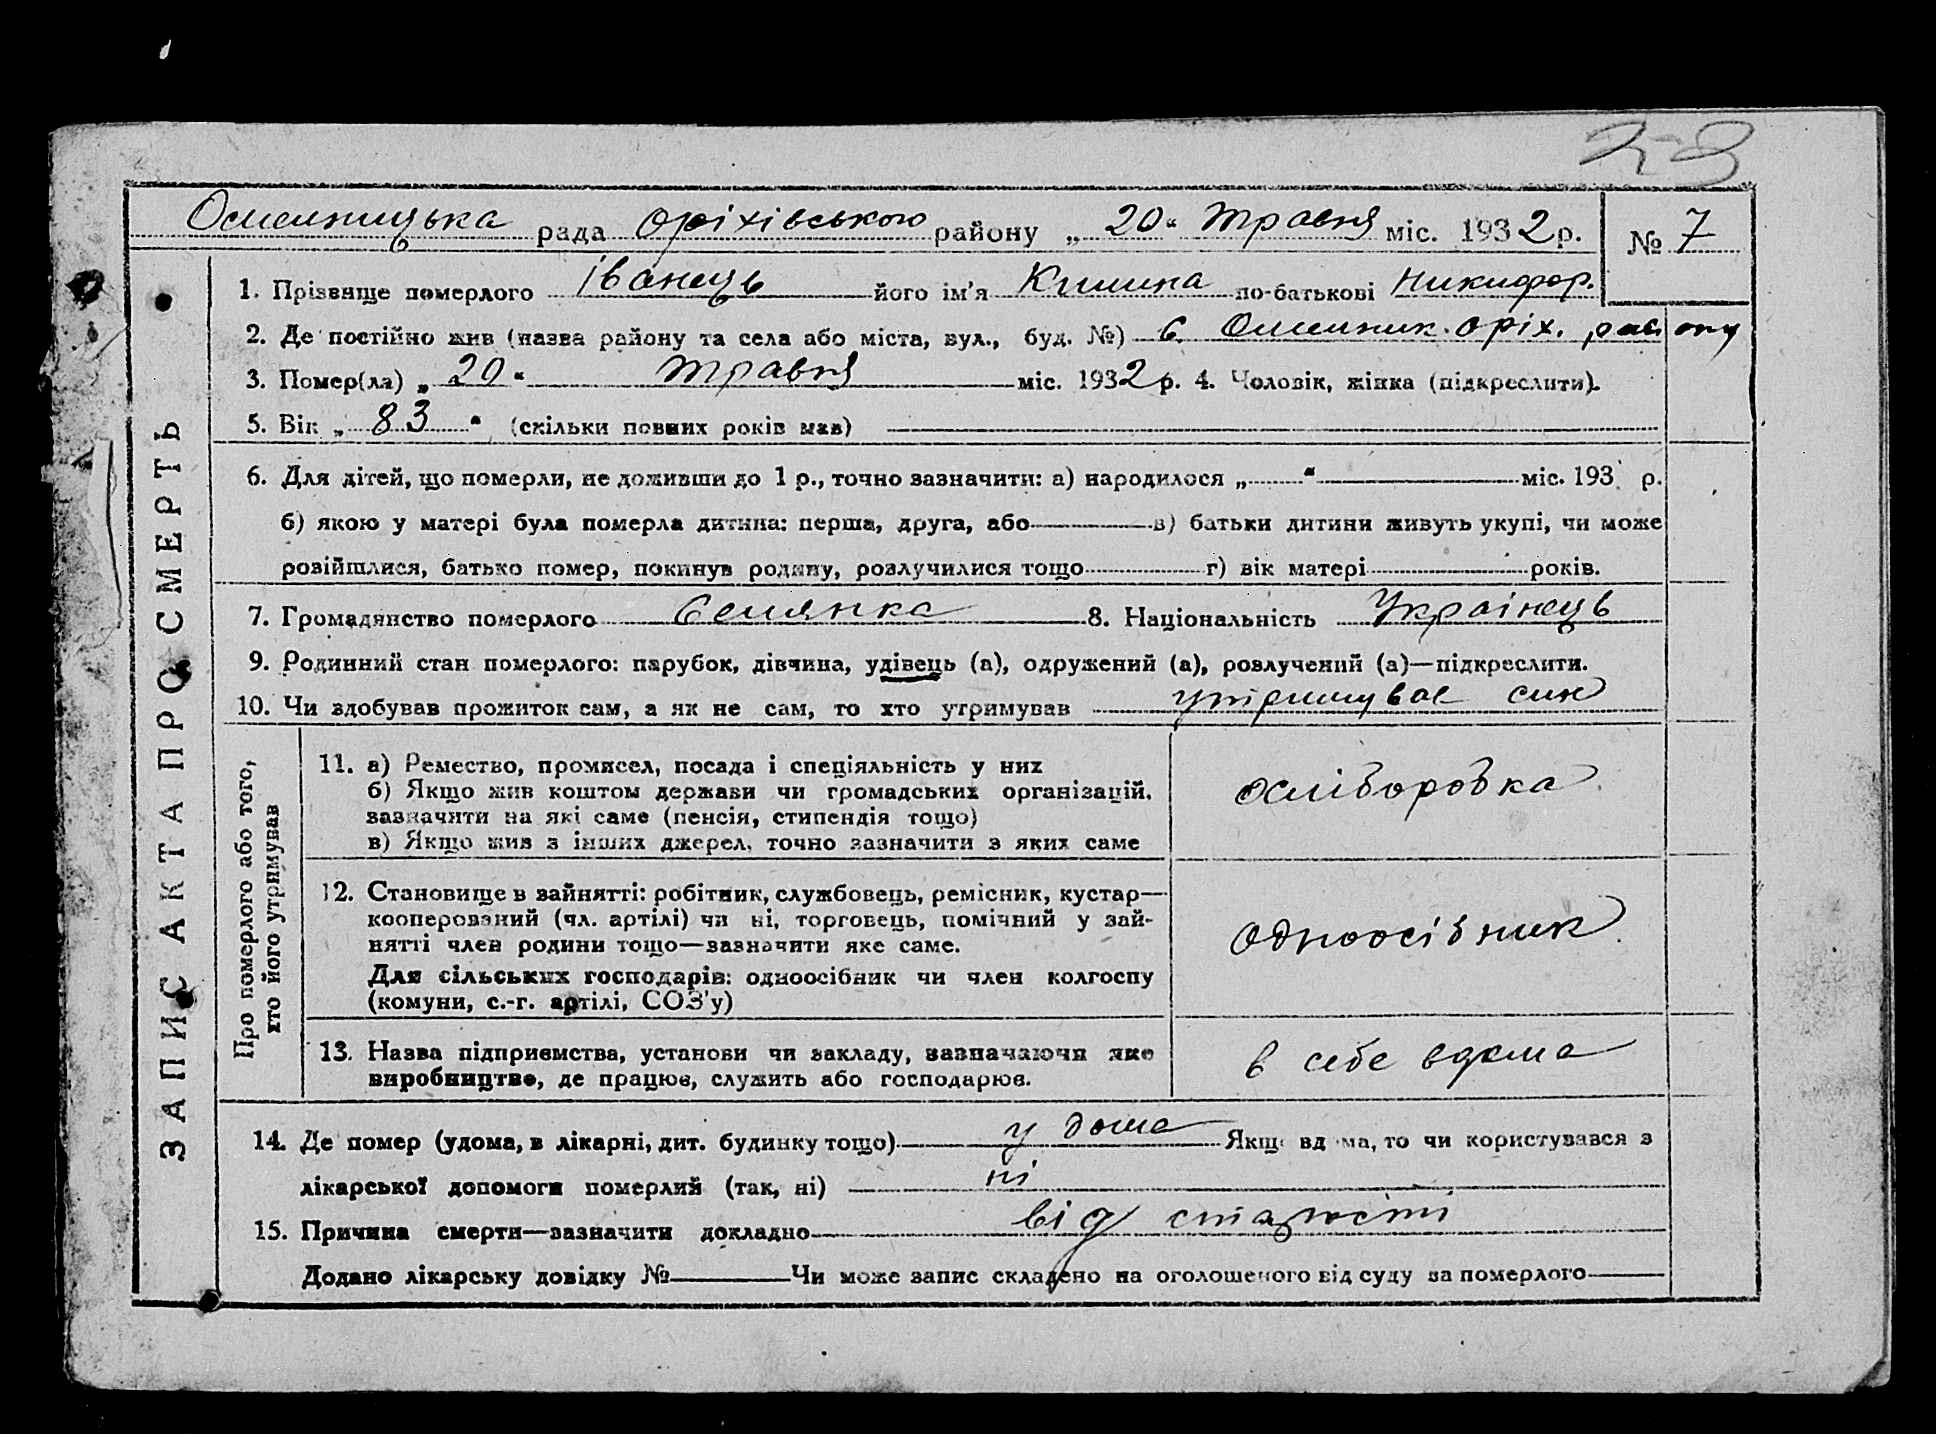 23
Омельницька рада Оріхівського району „ 20 “ травня міс. 1932 р. № 7
ЗАПИС АКТА ПРО СМЕРТЬ
1. Прізвище померлого Іванець його ім'я Килина по-батькові Никифор.
2. Де постійно жив (назва району та села або міста, вул., буд. №) с. Омельник. Оріх. району
3. Помер(ла) „ 20 “ травня міс. 1932 р. 4. Чоловік, жінка (підкреслити).
5. Вік „ 83 “ (скільки повних років мав)
6. Для дітей, що померли, не доживши до 1 р., точно зазначити: а) народилося „ “ міс. 193 р.
б) якою у матері була померла дитина: перша, друга, або в) батьки дитини живуть укупі, чи може
розійшлися, батько помер, покинув родину, розлучилися тощо г) вік матері років.
7. Громадянство померлого Селянка 8. Національність Українець
9. Родинний стан померлого: парубок, дівчина, удівець (а), одружений (а), розлучений (а)—підкреслити.
10. Чи здобував прожиток сам, а як не сам, то хто утримував утримував син
Про померлого або того,
хто його утримував
11. а) Ремество, промисел, посада і спеціяльність у них
б) Якщо жив коштом держави чи громадських організацій,
зазначити на які саме (пенсія, стипендія тощо)
в) Якщо жив з інших джерел, точно зазначити з яких саме
хліборобка
12. Становище в зайнятті: робітник, службовець, ремісник, кустар—
кооперований (чл. артілі) чи ні, торговець, помічний у зай-
нятті член родини тощо—зазначити яке саме.
Для сільських господарів: одноосібник чи член колгоспу
(комуни, с.-г. артілі, СОЗ'у)
одноосібник
13. Назва підприємства, установи чи закладу, зазначаючи яке
виробництво, де працює, служить або господарює.
в себе вдома
14. Де помер (удома, в лікарні, дит. будинку тощо) у дома Якщо вдома, то чи користувався з
лікарської допомоги померлий (так, ні) ні
15. Причина смерти—зазначити докладно від старості
Додано лікарську довідку № Чи може запис складено на оголошеного від суду за померлого